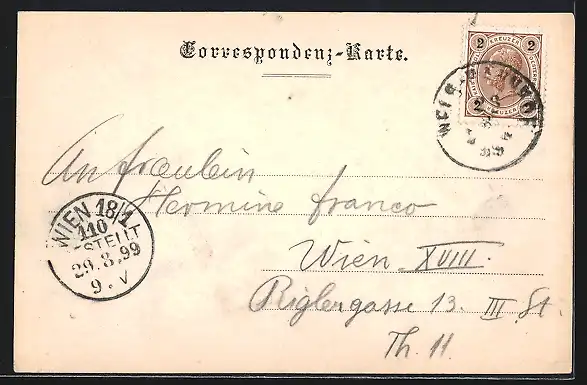 Correspondenz-Karte.
2 KREUZER 2
2
WELS-BAHNHOF
An Fräulein
Hermine Franco
Wien XVIII.
Riglergasse 13. III St.
Th. 11
WIEN 18/1
110
BESTELLT
29.3.99
9.V